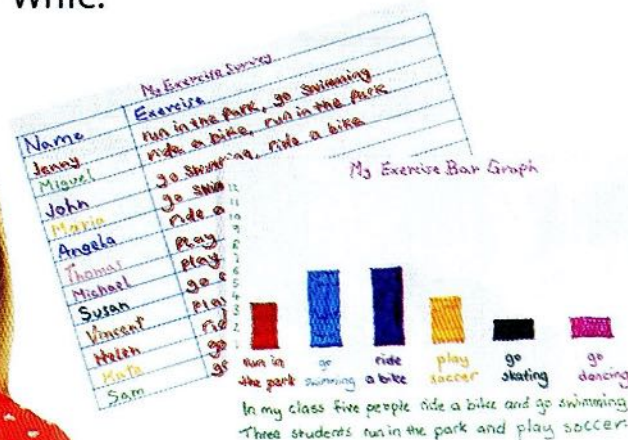 write.
My Exercise Survey
Name Exercise
Jenny run in the park, go swimming
Miguel ride a bike, run in the park
John go swimming, ride a bike
Maria go
Angela ride a
Thomas play
Michael play
Susan go
Vincent play
Helen
Kate go
Sam
My Exercise Bar Graph
12
11
10
9
8
7
6
5
4
3
2
1
run in the park
go swimming
ride a bike
play soccer
go skating
go dancing
In my class five people ride a bike and go swimming
Three students run in the park and play soccer.